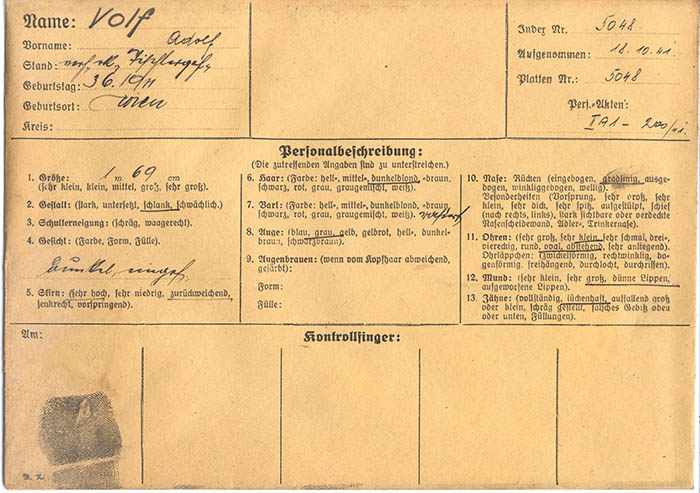 Name: Volf
Vorname: Adolf
Stand: verh. rk. Tischlergeh.
Geburtstag: 3 6. 1911
Geburtsort: Wien
Kreis:
Index Nr. 5048
Aufgenommen: 18. 10. 41.
Platten Nr.: 5048
Pers.-Akten:
IA1 - 200/41.
Personalbeschreibung:
(Die zutreffenden Angaben sind zu unterstreichen.)
1. Größe: 1 m 69 cm
(sehr klein, klein, mittel, groß, sehr groß).
2. Gestalt: (stark, untersetzt, schlank, schwächlich.)
3. Schulterneigung: (schräg, waagerecht.)
4. Gesicht: (Farbe, Form, Fülle).
Dunkel,
5. Stirn: (sehr hoch, sehr niedrig, zurückweichend,
senkrecht, vorspringend).
6. Haar: (Farbe: hell-, mittel-, dunkelblond, -braun,
schwarz, rot, grau, graugemischt, weiß).
7. Bart: (Farbe: hell-, mittel-, dunkelblond, -braun,
schwarz, rot, grau, graugemischt, weiß).
8. Auge: (blau, grau, gelb, gelbrot, hell-, dunkel-
braun, schwarzbraun).
9. Augenbrauen: (wenn vom Kopfhaar abweichend,
gefärbt):
Form:
Fülle:
10. Nase: Rücken (eingebogen, gradlinig, ausge-
bogen, winkliggebogen, wellig).
Besonderheiten (Vorsprung, sehr groß, sehr
klein, sehr dick, sehr spitz, aufgestülpt, schief
(nach rechts, links), stark sichtbare oder verdeckte
Nasenscheidewand, Adler-, Trinkernase).
11. Ohren: (sehr groß, sehr klein, sehr schmal, drei-,
viereckig, rund, oval, abstehend, sehr anliegend).
Ohrläppchen: (zwickelförmig, rechtwinklig, bo-
genförmig, freihängend, durchlocht, durchrissen).
12. Mund: (sehr klein, sehr groß, dünne Lippen,
aufgeworfene Lippen).
13. Zähne: (vollständig, lückenhaft, auffallend groß
oder klein, schräg gestellt, falsches Gebiß oben
oder unten, Füllungen).
Am:
Kontrollfinger: